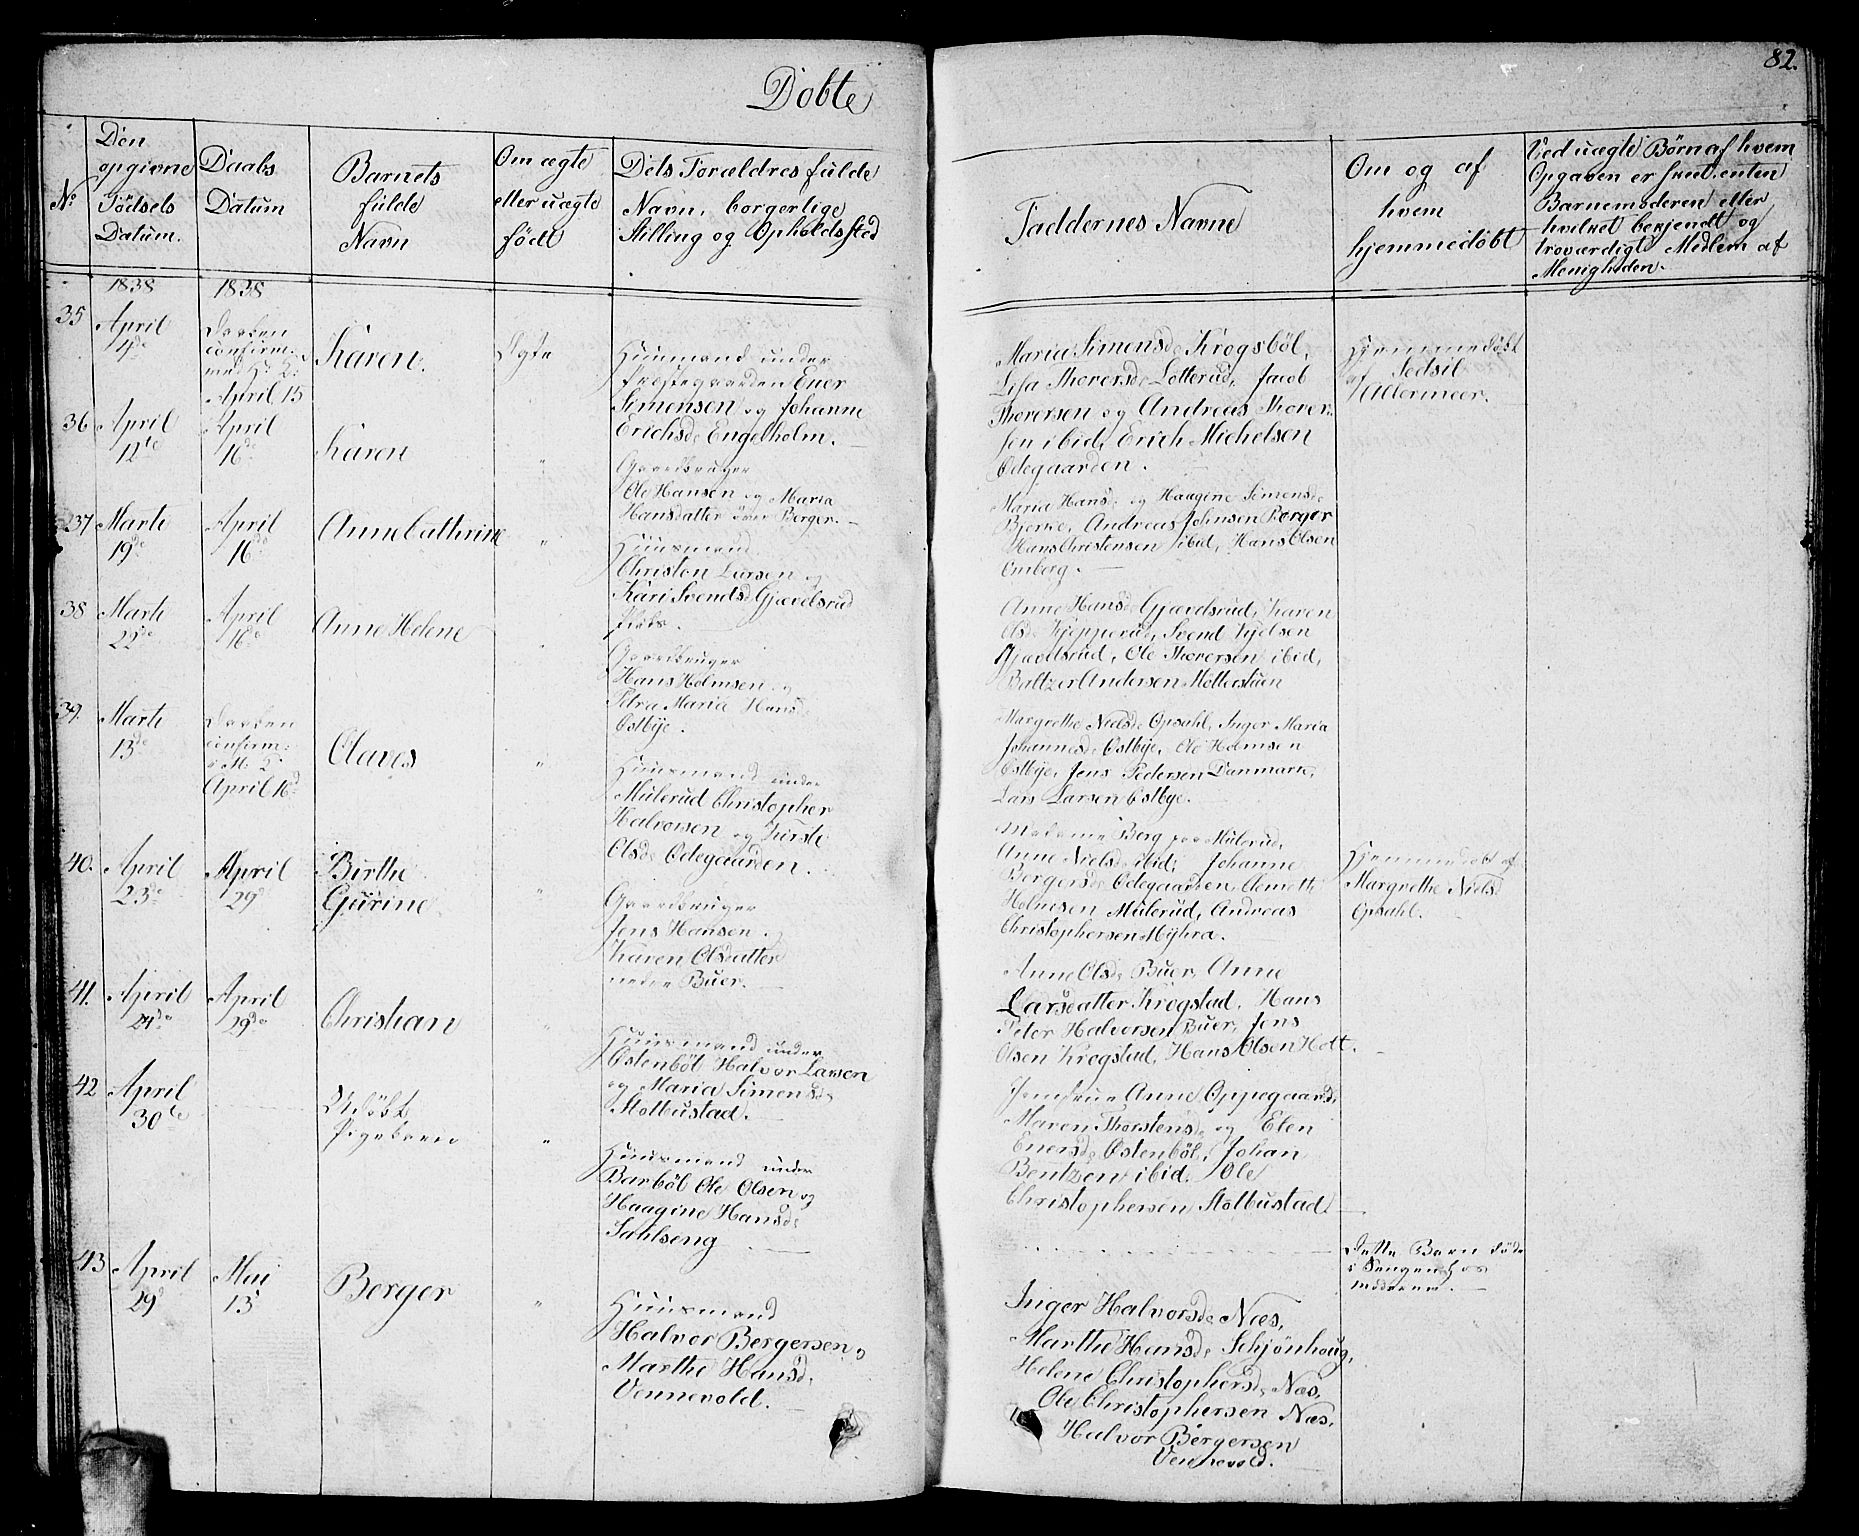 Døbte
82.
No
Den
opgivne
Fødsels
Datum.
Daabs
Datum
Barnets
fulde
Navn
Om ægte
eller uægte
født
Dets Forældres fulde
Navn, borgerlige
Stilling og Opholdssted
Faddernes Navne
Om og af
hvem
hjemmedøbt
Ved uægte Børn af hvem
Opgaven er skeet, enten
Barnemoderen eller
hvilket bekjendt og
troværdigt Medlem af
Menigheden.
1838
1838
35
April
4de
Daaben
confirm:
April 15
Karen.
Ægte
Huusmand under
Præstegaarden Ener
Simensen og Johanne
Erichsd: Engelholm.
Maria Simensd: Krogsbøl,
Lisa Thorersd: Lotterud, Jacob
Thorersen og Andreas Thorer-
sen ibid, Erich Michelsen
Ødegaarden.
Hjemmedøbt
af Sedsil
Allermeer.
36
April
12te
April
16de
Karen
"
Gaardbruger
Ole Hansen og Maria
Hansdatter øvre Berger.
Maria Hansd: og Haagine Simensd:
Bjerke, Andreas Johnsen Berger
Hans Christensen ibid, Hans Olsen
Omberg.
37
Marti
19de
April
16de
Anne Cathrine
"
Huusmand
Christen Larsen og
Kari Svendsd: Gjævelsrud
Plads.
Anne Hansd: Gjævelsrud, Karen
Olsd: Kjepperud, Svend Kjelsen
Gjævelsrud, Ole Thorersen ibid,
Baltzer Andersen Møtterstuen
38
Marti
22de
April
16de
Anne Helene
"
Gaardbruger
Hans Holmsen og
Petra Maria Hansd:
Østbye.
Margrethe Nielsd: Opsahl, Inger Maria
Johannesd: Østbye, Ole Holmsen
Østbye, Jens Pedersen Danmark,
Lars Larsen Østbye.
39.
Marti
13de
Daaben
confirm:
April 16d
Olaves
"
Huusmand under
Mulerud Christopher
Halvorsen og Kirsti
Olsd: Ødegaarden.
Madame Berg paa Mulerud,
Anne Nielsd: ibid, Johanne
Bergersd: Ødegaarden, Clemett
Holmsen Mulerud, Andreas
Christophersen Myhra.
40.
April
23de
April
29d
Birthe
Gurine
"
Gaardbruger
Jens Hansen og
Karen Olsdatter
nedre Buer.
Anne Olsd: Buer, Anne
Larsdatter Krogstad, Hans
Peter Halvorsen Buer, Jens
Olsen Krogstad, Hans Olsen Holt.
Hjemmedøbt af
Margrethe Nielsd
Opsahl.
41.
April
24de
April
29de
Christian
"
Huusmand under
Østenbøl Halvor Larsen
og Maria Simensd:
Stotbustad.
Jomfrue Anne Oppegaard,
Maren Thorstensd: og Elen
Enersd: Østenbøl, Johan
Bentzen ibid. Ole
Christophersen Stotbustad
42
April
30te
Udøbt
Pigebarn
"
Huusmand under
Barbøl Ole Olsen og
Haagine Hansd:
Sahlseng
Dette Barn døde
i Sengen hos
moderen.
43
April
29d
Mai
13
Berger
"
Huusmand
Halvor Bergersen og
Marthe Hansd:
Vennevold.
Inger Halvorsd: Næs,
Marthe Hansd: Schjønhaug,
Helene Christophersd: Næs,
Ole Christophersen Næs,
Halvor Bergersen
Vennevold.